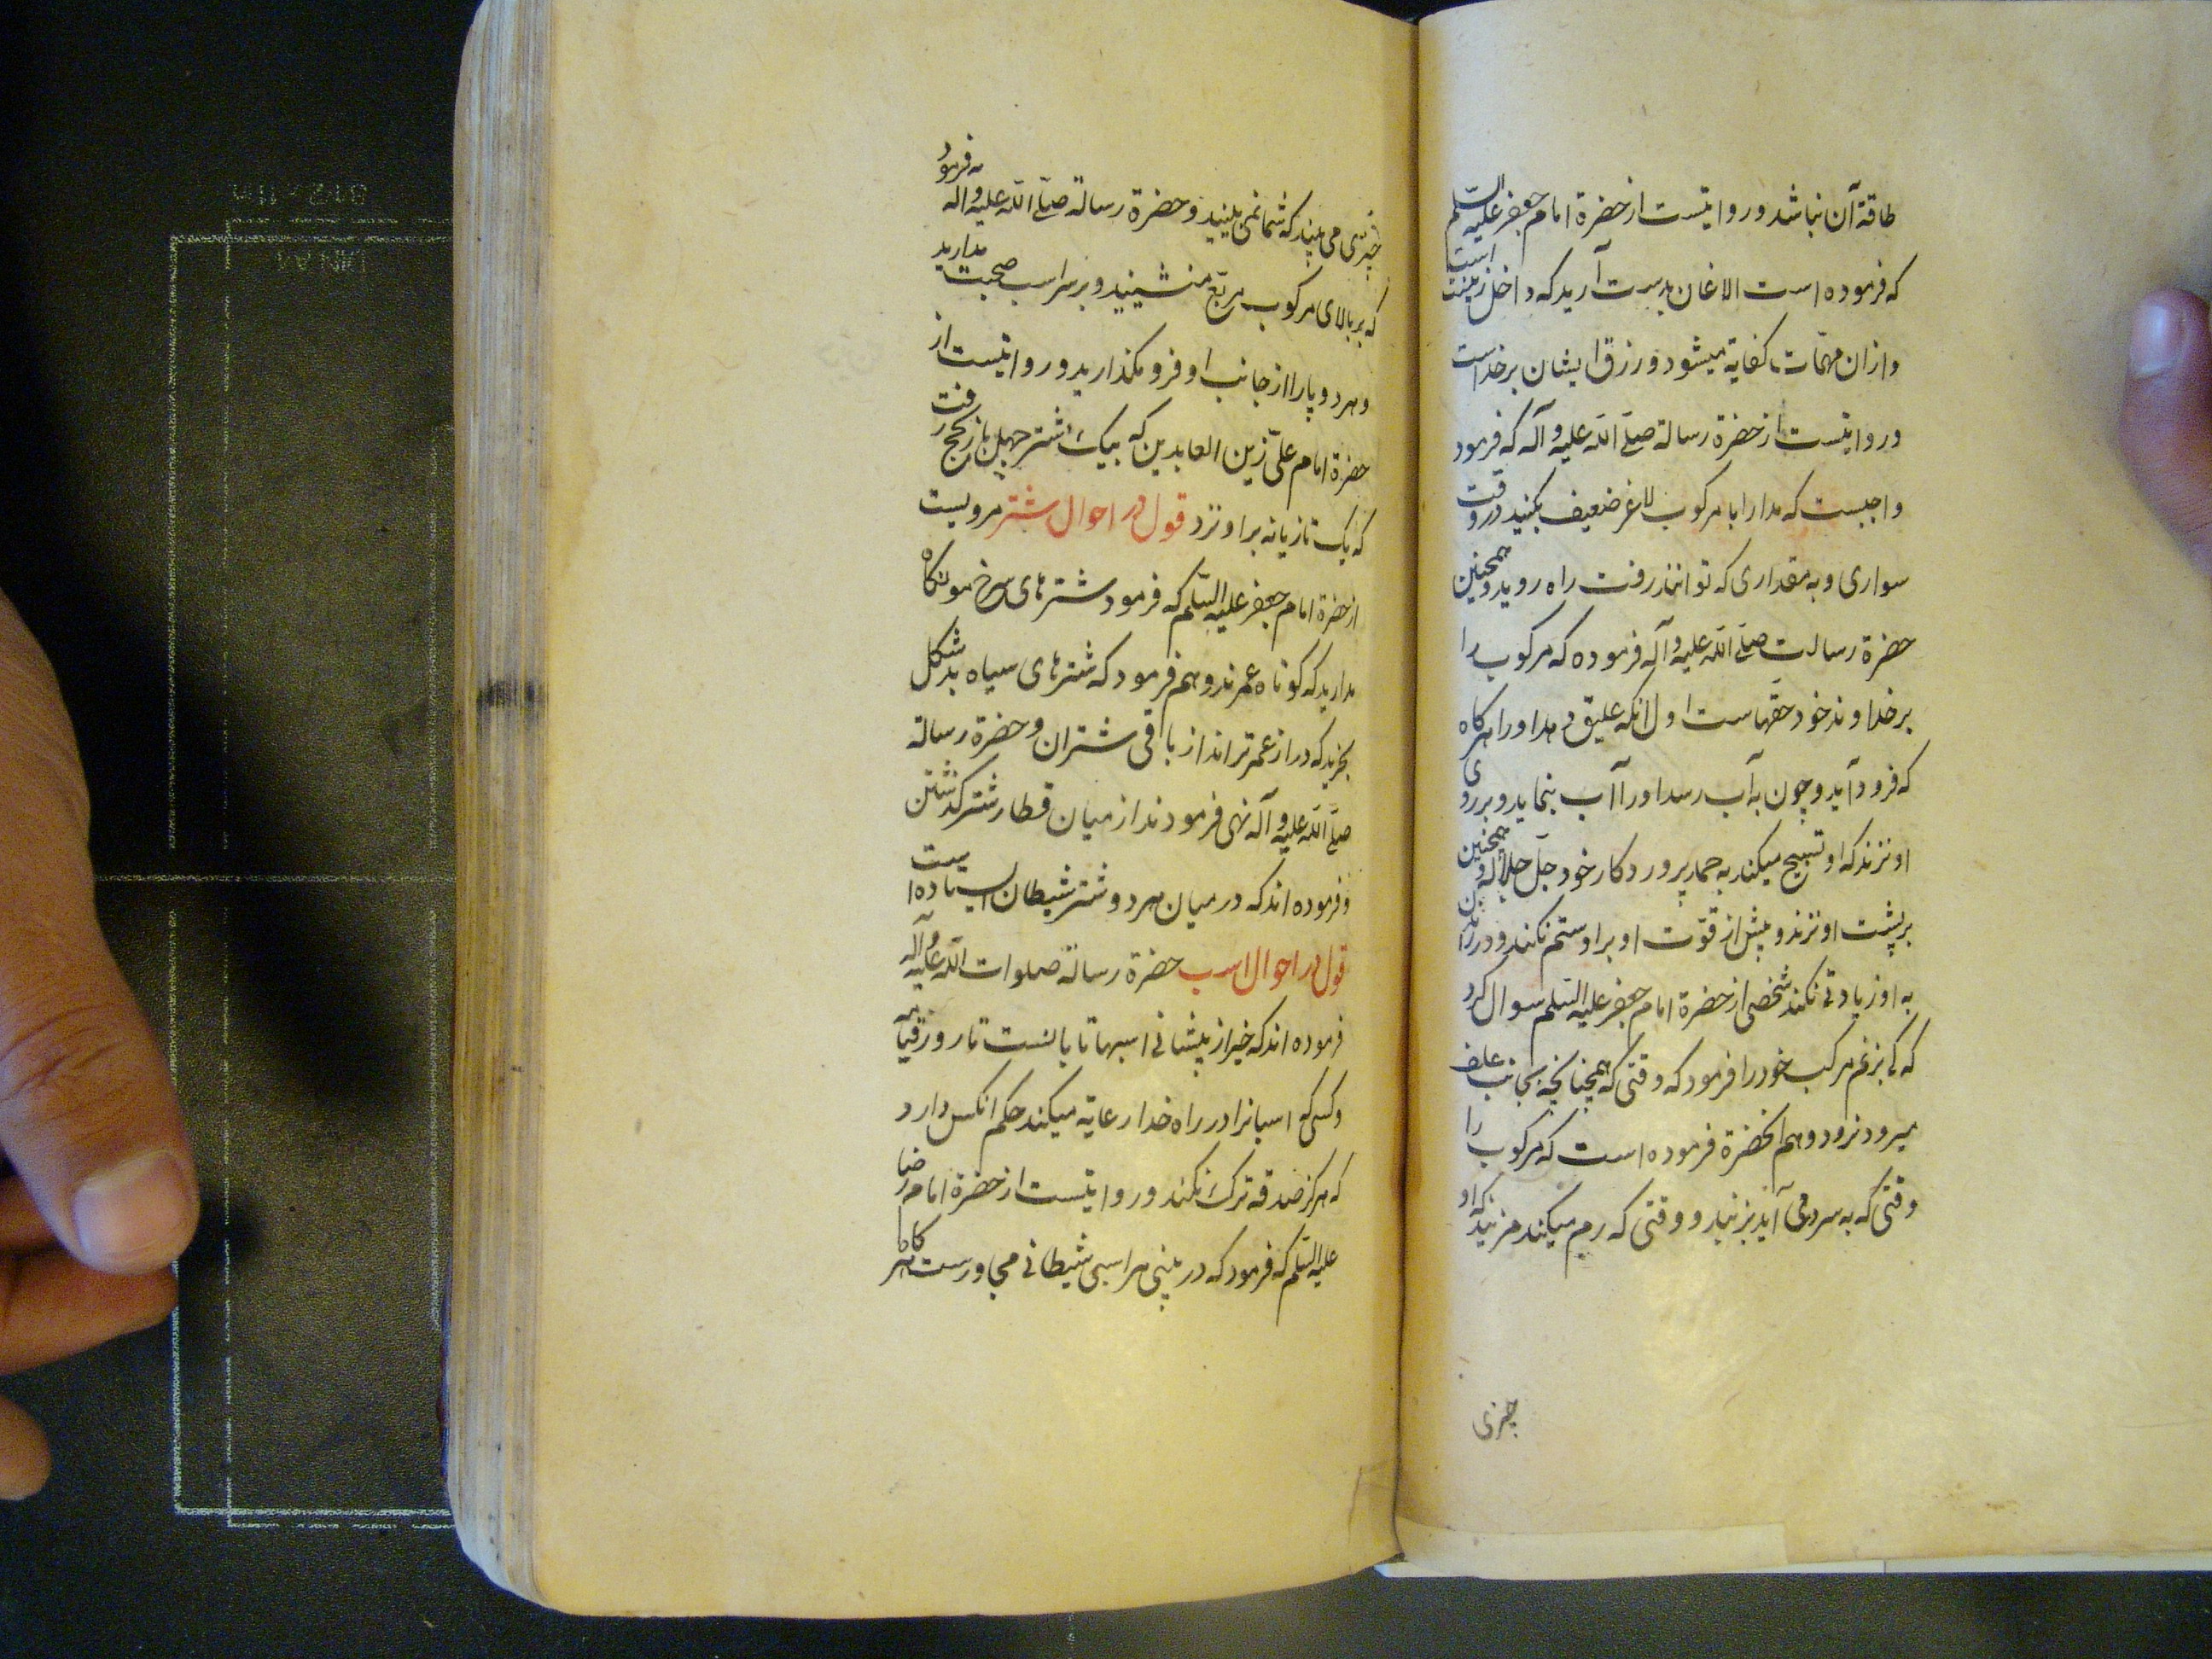 طاقة آن نباشد و روایتست از حضرة امام جعفر علیه السّلم
که فرموده است الاغان بدست آرید که داخل زینت است
و ازان مهمّات کفایة میشود و رزق ایشان بر خداست
و روایتست از حضرة رسالة صلّی اللّه علیه و آله که فرمود
واجبست که مدارا با مرکوب لاغر ضعیف بکنید در وقت
سواری و به مقداری که توانند رفت راه روید و همچنین
حضرة رسالت صلّی اللّه علیه و آله فرموده که مرکوب را
بر خداوند خود حقّهاست اول انکه علیق دهد او را هرکاه
که فرود آید و چون به آب رسد او را آب بنماید و بر روی
او نزند که او تسبیح میکند به حمد پرورد کار خود جلّ جلاله و همچنین
بر پشت او نزند و بیش از قوّت او بر او ستم نکند و در راندن
به او زیادتی نکند شخصی از حضرة امام جعفر علیه السّلم سوال کرد
که کی بزنم مرکب خود را فرمود که وقتی که همچنانچه بجانب علف
میرود نرود و هم انحضرة فرموده است که مرکوب را
وقتی که به سر دمی آید بزنید و وقتی که رم میکند مزنید که او
چیزی
چیزی می بیند که شما نمی بینید و حضرة رسالة صلّی اللّه علیه و اله فرمود
که بر بالای مرکوب مربّع منشینید و بر سر اسب صحبت مدارید
و هر دو پا را از جانب او فرو مکذارید و روایتست از
حضرة امام علی زین العابدین که بیک شتر چهل بار بحج رفت
که یک تازیانه بر او نزد قول در احوال شتر مرویست
از حضرة امام جعفر علیه السّلم که فرمود شترهای سرخ مو نکاه
مدارید که کوتاه عمرند و هم فرمود که شترهای سیاه بد شکل
بخرید که دراز عمرتر انداز باقی شتران و حضرة رسالة
صلّی اللّه علیه و آله نهی فرمودند از میان قطار شتر کذشتن
و فرموده اند که در میان هر دو شتر شیطان ایستاده است
قول در احوال اسب حضرة رسالة صلوات اللّه علیه و آله
فرموده اند که خیر از پیشانی اسبها تابانست تا روز قیامة
و کسی که اسبانرا در راه خدا رعایة میکند حکم انکس دارد
که هرکز صدقه ترک نکند و روایتست از حضرة امام رضا
علیه السّلم که فرمود که در بینی هر اسبی شیطانی مجاورست هر کاه